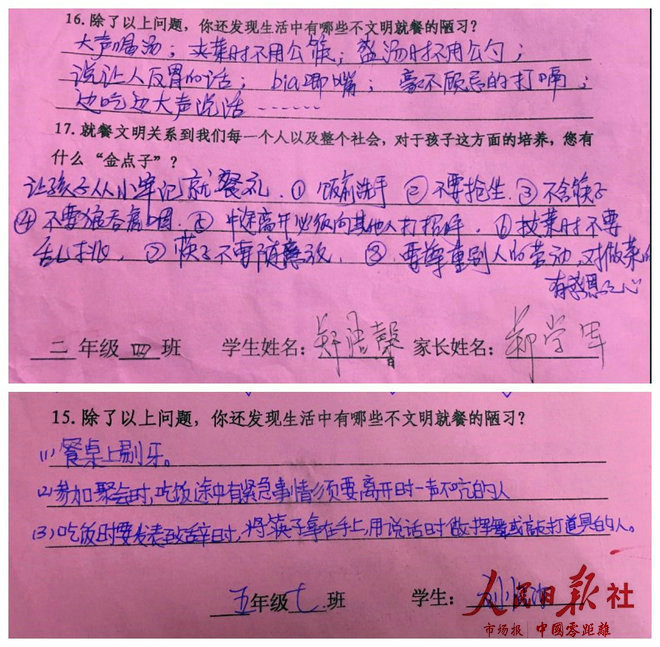 16. 除了以上问题，你还发现生活中有哪些不文明就餐的陋习？
大声喝汤；夹菜时不用公筷；盛汤时不用公勺；
说让人反胃的话；bia唧嘴；毫不顾忌的打嗝；
边吃边大声说话……
17. 就餐文明关系到我们每一个人以及整个社会，对于孩子这方面的培养，您有
什么“金点子”？
让孩子从小牢记就餐礼. ①饭前洗手 ②不要抢坐. ③不含筷子
④不要狼吞虎咽. ⑤中途离开必须向其他人打招呼. ⑥夹菜时不要
乱挑. ⑦筷子不要随意放. ⑧要尊重别人的劳动, 对做菜的
有感恩之心
二年级四班 学生姓名： 家长姓名：
15. 除了以上问题，你还发现生活中有哪些不文明就餐的陋习？
(1)餐桌上剔牙。
(2)参加聚会时,吃饭途中有紧急事情须要离开时一声不吭的人
(3)吃饭时要发表致辞时,将筷子拿在手上,用说话时做挥舞或敲打道具的人。
五年级七班 学生：
人民日报社
市场报 中國零距離